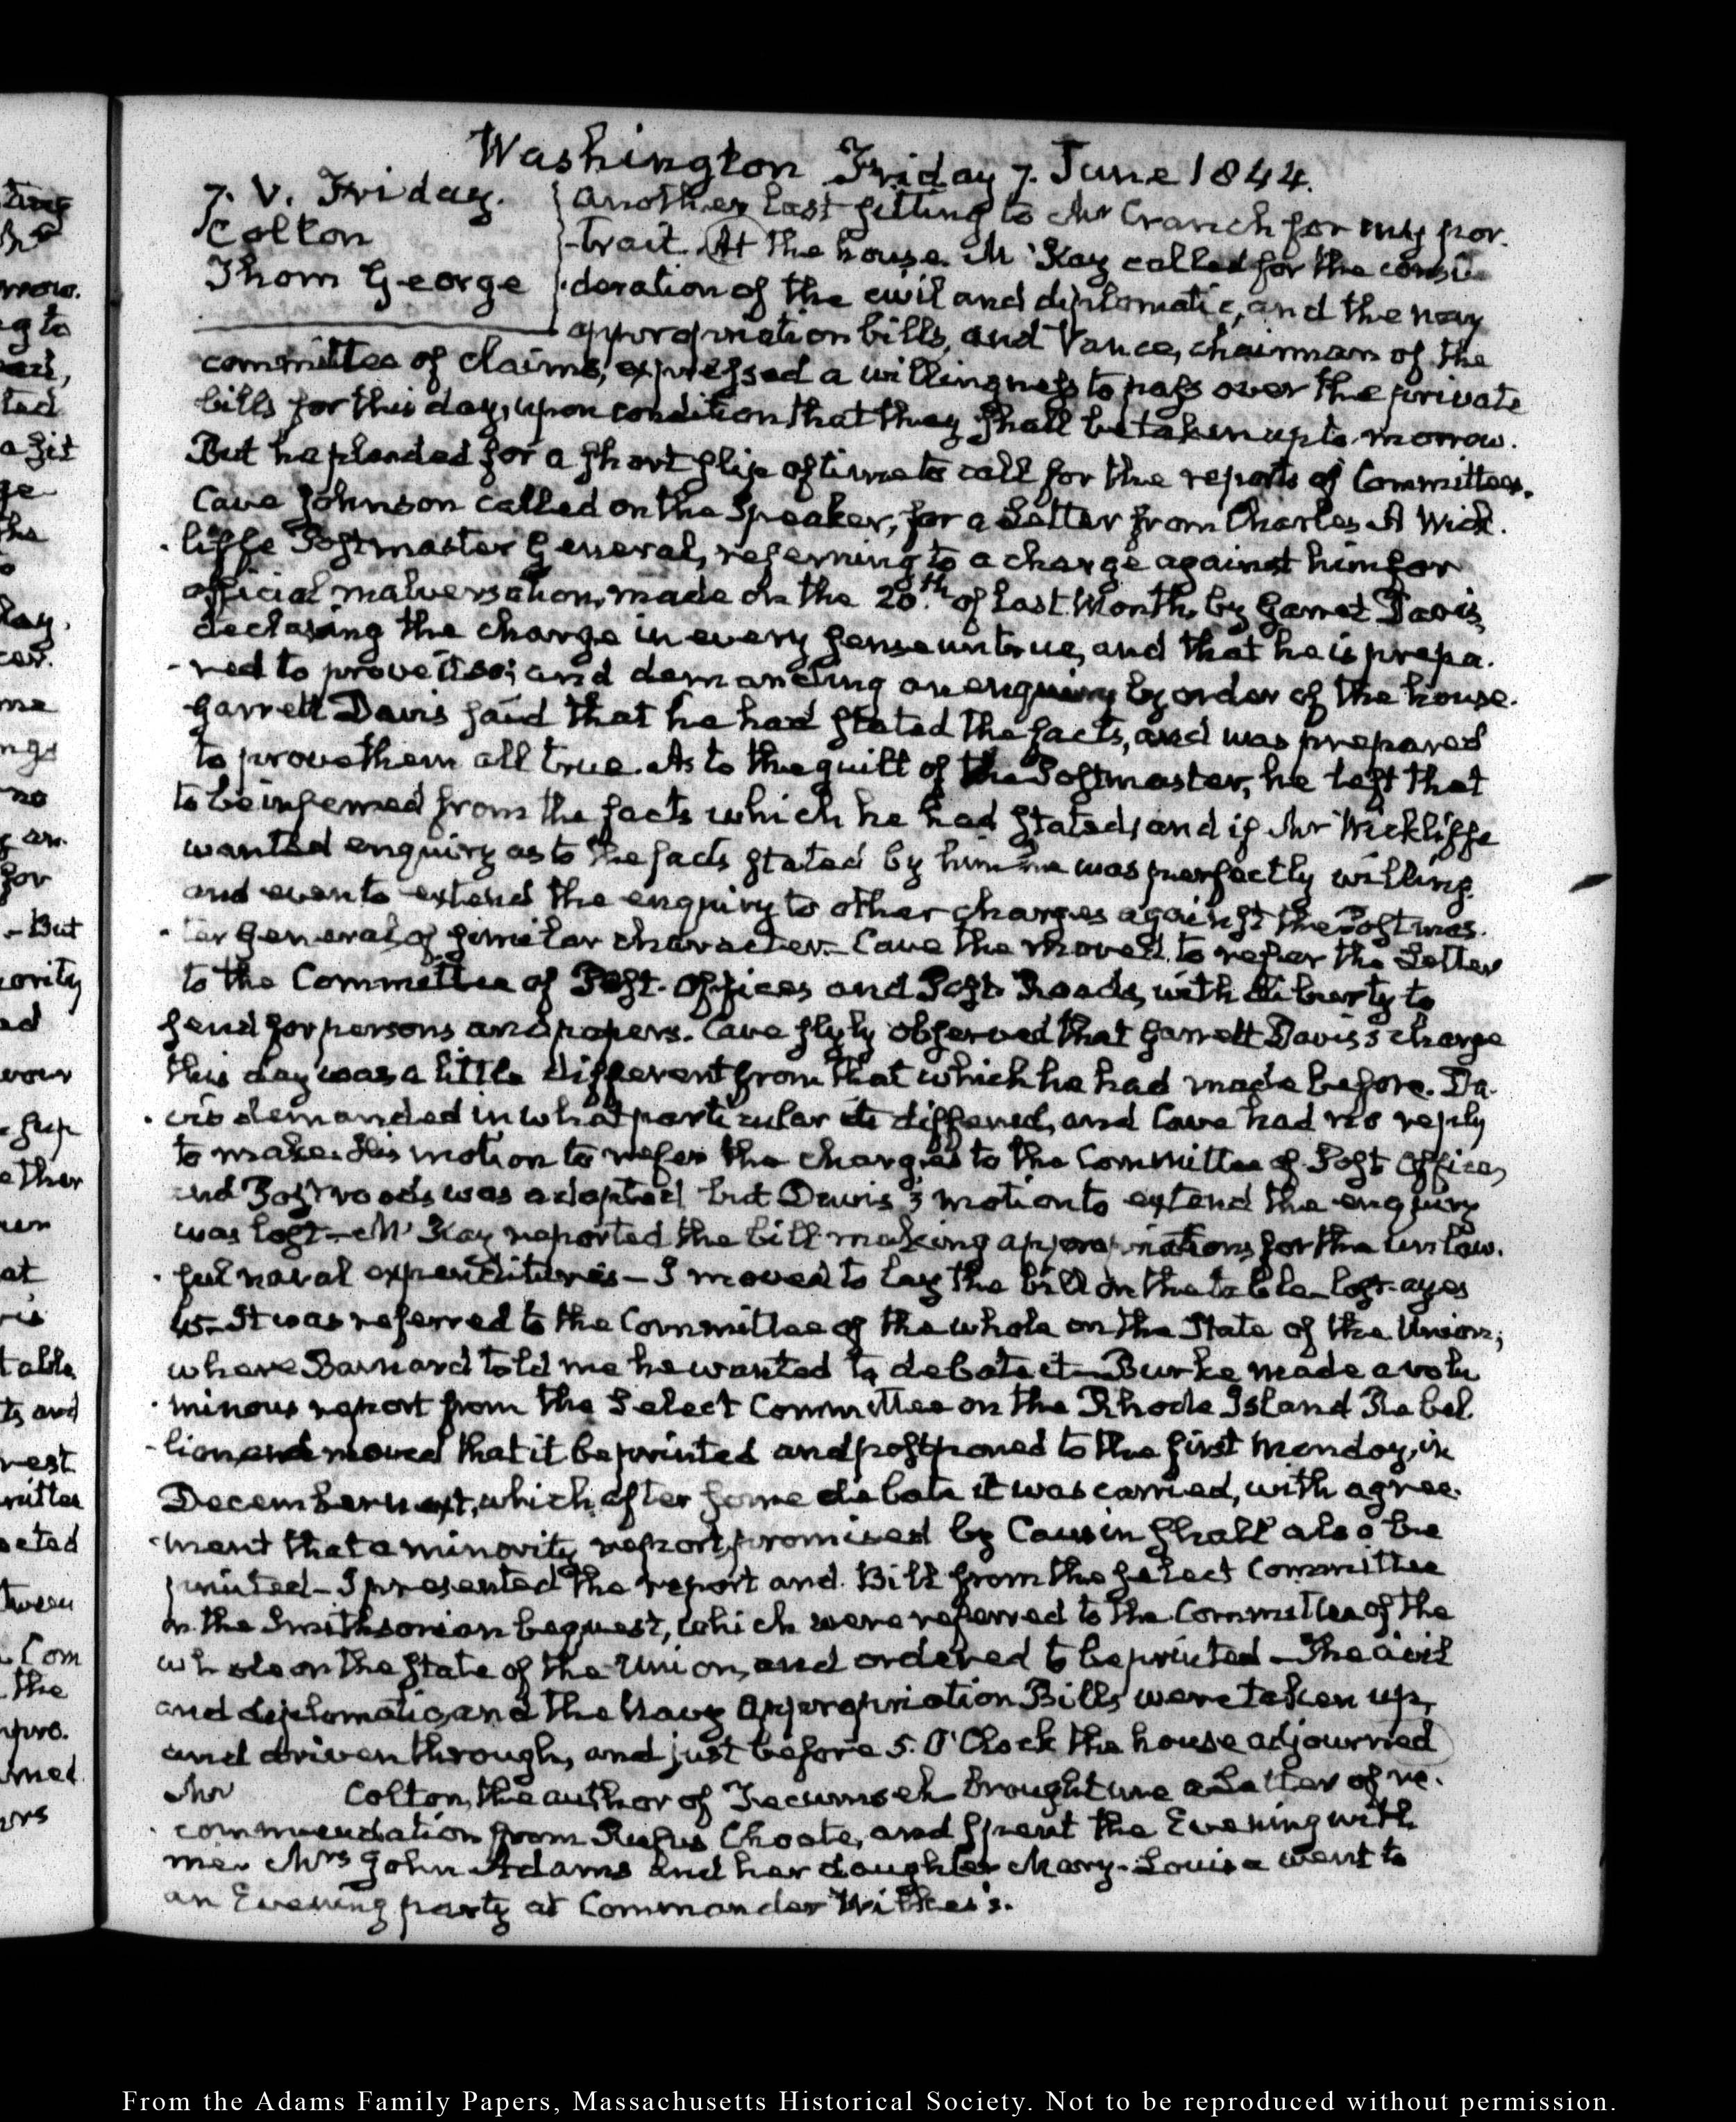 Washington Friday 7. June 1844.
7. V. Friday.
Colton
Thom George
Another last sitting to Mr Cranch for my por-
-trait. At the house. McKay called for the consi-
-deration of the civil and diplomatic, and the navy
appropriation bills, and Vance, chairman of the
committee of Claims, expressed a willingness to pass over the private
bills for this day, upon condition that they shall be taken up to-morrow.
But he pleaded for a short slip of time to call for the reports of Committees.
Cave Johnson called on the Speaker, for a Letter from Charles A Wick-
-liffe Postmaster General, referring to a charge against him for
official malversation, made on the 20th. of last Month, by Garret Davis,
declaring the charge in every sense untrue, and that he is prepa-
-red to prove it so; and demanding an enquiry by order of the house.
Garrett Davis said that he had stated the facts, and was prepared
to prove them all true. As to the guilt of the Postmaster, he left that
to be inferred from the facts which he had stated, and if Mr Wickliffe
wanted enquiry as to the facts stated by him he was perfectly willing.
and even to extend the enquiry to other charges against the Postmas-
-ter General, of similar character. Cave the moved to refer the Letter
to the Committee of Post-Offices and Post Roads, with liberty to
send for persons and papers. Cave slyly observed that Garrett Davis's charge
this day was a little different from that which he had made before. Da-
-vis demanded in what particular it differed, and Cave had no reply
to make. His motion to refer the charges to the Committee of Post Offices,
and Post roads was adopted but Davis's motion to extend the enquiry
was lost— McKay reported the bill making appropriations for the unlaw-
-ful naval expenditures— I moved to lay the bill on the table— lost. ayes
45— It was referred to the Committee of the whole on the State of the Union;
where Barnard told me he wanted to debate it— Burke made a volu-
-minous report from the Select Committee on the Rhode Island Rebel-
-lion and moved that it be printed and postponed to the first Monday, in
December next, which after some debate it was carried, with agree-
-ment that a minority report, promised by Causin shall also be
printed— I presented the report and Bill from the select Committee
on the Smithsonian bequest, which were referred to the Committee of the
whole on the State of the Union, and ordered to be printed— The civil
and diplomatic, and the Navy Appropriation Bills were taken up,
and driven through, and just before 5. O'Clock the house adjourned
Mr Colton, the author of Tecumseh brought me a Letter of re-
-commendation from Rufus Choate, and spent the Evening with
me. Mrs John Adams and her daughter Mary-Louisa went to
an Evening party at Commander Wilkes's.
From the Adams Family Papers, Massachusetts Historical Society. Not to be reproduced without permission.